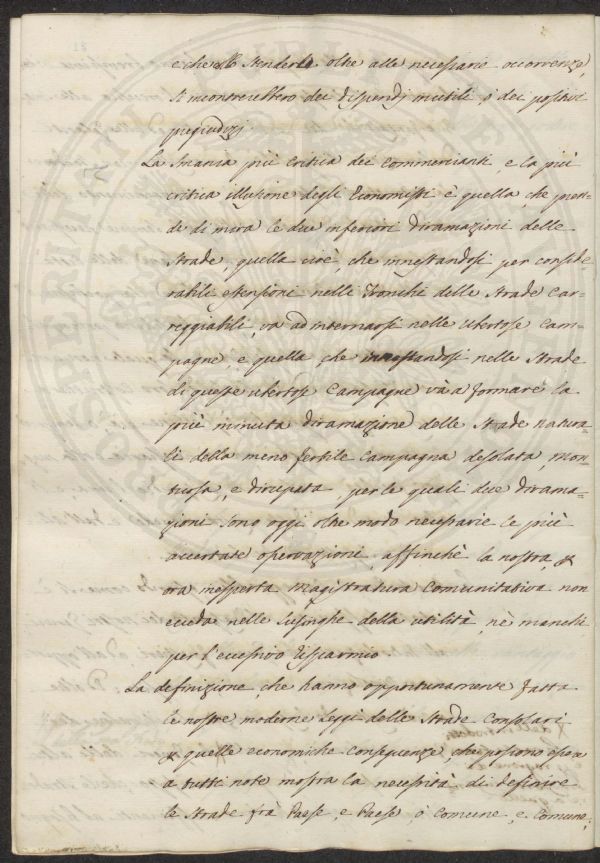 e che allo stenderle oltre alle necessarie occorrenze,
s'incontrerebbero dei dispendj inutili, ò dei positivi
pregiudizj
La smania più critica dei commercianti, e la più
critica illusione degli Economisti è quella, che pren=
de di mira le due inferiori diramazioni delle
Strade, quella cioè, che innestandosi per conside
rabili estensioni nelli Tronchi delle Strade Car=
reggiabili, va ad internarsi nelle ubertose Cam=
pagne, e quella, che innestandosi nelle Strade
di queste ubertose Campagne và a formare la
più minuta diramazione delle Strade natura=
li della meno fertile Campagna desolata, mon=
tuosa, e dirupata per le quali due dirama=
zioni sono oggi oltre modo necessarie le più
accertate osservazioni, affinchè la nostra, &
ora inesperta Magistratura Comunitativa non
ecceda nelle lusinghe della utilità, nè manchi
per l'eccessivo risparmio
La definizione, che hanno opportunamente fatta
le nostre moderne leggi delle Strade Consolari
& quelle economiche conseguenze, che possono essere
a tutti note mostra la necessità di definire
le Strade frà Paese, e Paese, ò Comune, e Comune,